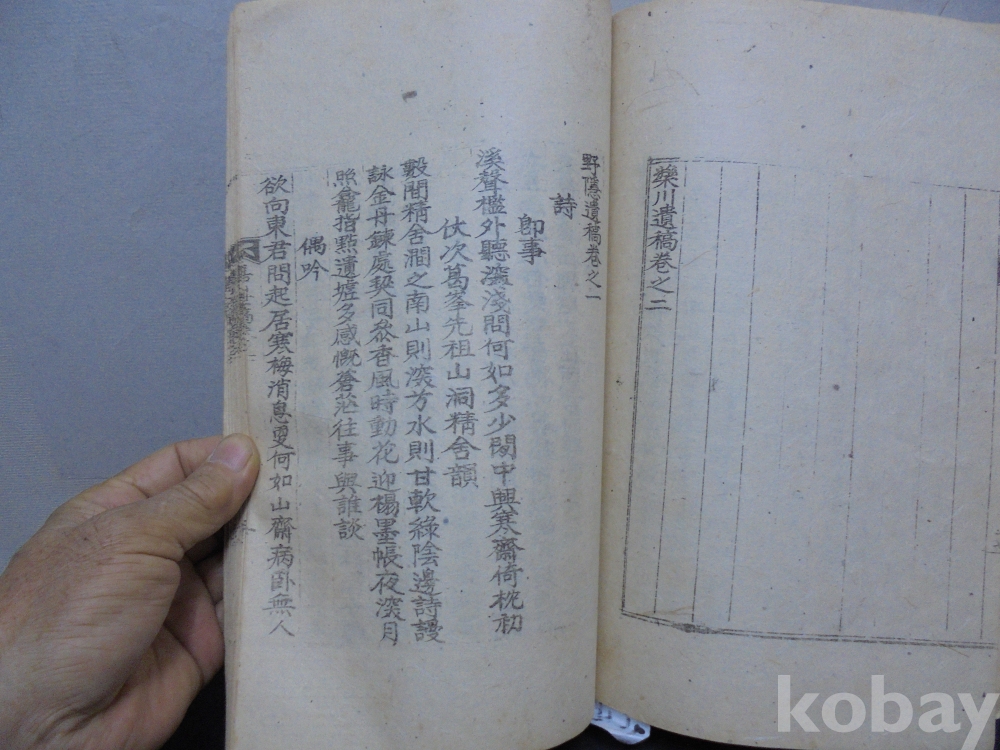 欒川遺稿卷之二
野隱遺稿卷之一
詩
卽事
溪聲檻外聽深淺問何如多少閒中興寒齋倚枕初
伏次葛峯先祖山洞精舍韻
數間精舍澗之南山則深方水則甘軒綠陰邊詩謾
詠金丹鍊處契同叅香風時動花迎榻墨帳夜深月
照龕指點遺墟多感慨蒼茫往事與誰談
偶吟
欲向東君問起居寒梅消息更何如山齋病臥無人
kobay